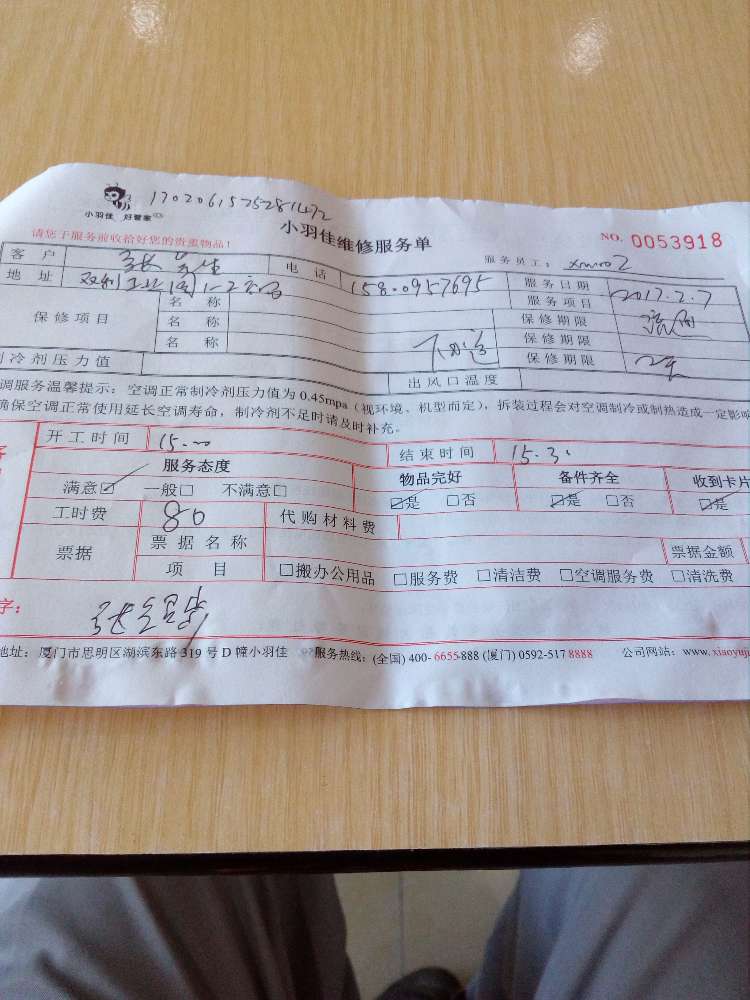 小羽佳 好管家
1702061525281472
小羽佳维修服务单
NO. 0053918
请您于服务前收拾好您的贵重物品！
服务员工：
客户 张先生 电话 15800957695 服务日期 2017.2.7
地址 服务项目
保修项目 名称 保修期限
名称 保修期限
名称 不制冷 保修期限
制冷剂压力值 出风口温度
调服务温馨提示：空调正常制冷剂压力值为 0.45mpa（视环境、机型而定），拆装过程会对空调制冷或制热造成一定影响
确保空调正常使用延长空调寿命，制冷剂不足时请及时补充。
开工时间 15.00 结束时间 15.30
服务态度 物品完好 备件齐全 收到卡片
满意☑ 一般□ 不满意□ ☑是 □否 ☑是 □否 ☑是
工时费 80 代购材料费
票据 票据名称 票据金额
项目 □搬办公用品 □服务费 □清洁费 □空调服务费 □清洗费
字：
地址：厦门市思明区湖滨东路 319 号 D 幢小羽佳 服务热线：(全国) 400-6655-888 (厦门) 0592-517 8888 公司网站：www.xiaoyuj